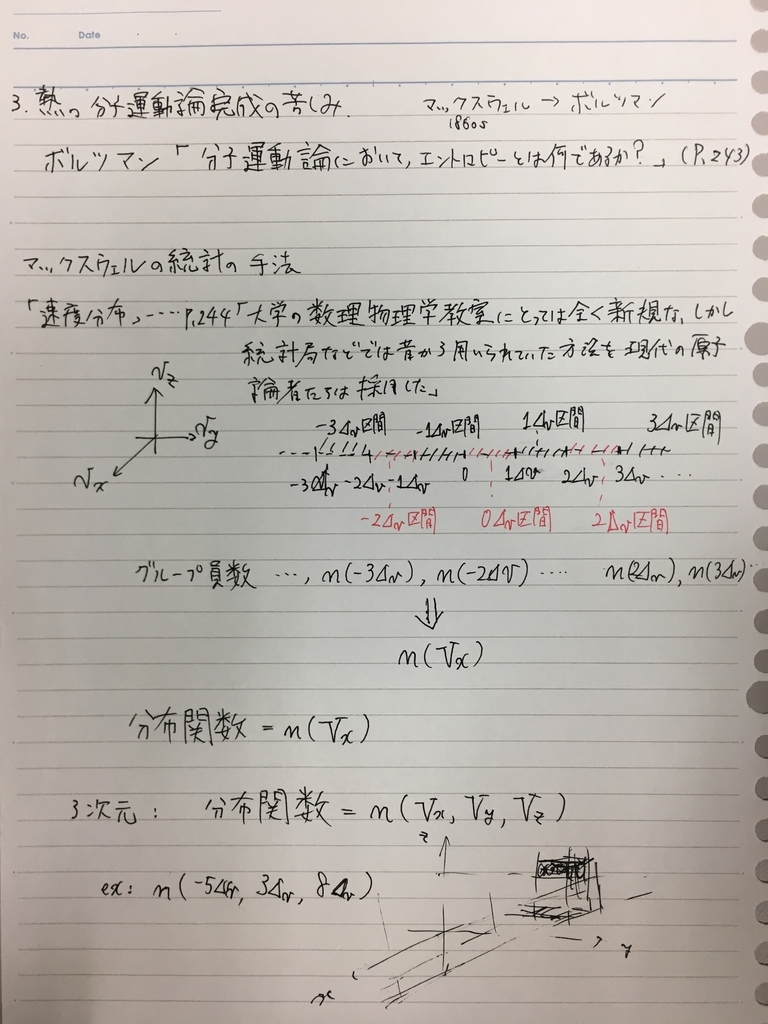 No. Date
3. 熱の分子運動論完成の苦しみ. マックスウェル → ボルツマン
1860s
ボルツマン「分子運動論において, エントロピーとは何であるか?」(P.243)
マックスウェルの統計の手法
「速度分布」‥‥P.244「大学の数理物理学教室にとっては全く新規な, しかし
統計局などでは昔から用いられていた方法を現代の原子
論者たちは採用した」
Vz
Vy
Vx
-3Δv区間 -1Δv区間 1Δv区間 3Δv区間
-3Δv -2Δv -1Δv 0 1Δv 2Δv 3Δv ...
-2Δv区間 0Δv区間 2Δv区間
グループ員数 ..., n(-3Δv), n(-2Δv) .... n(2Δv), n(3Δv)..
⇓
n(Vx)
分布関数 = n(Vx)
3次元: 分布関数 = n(Vx, Vy, Vz)
z
ex: n(-5Δv, 3Δv, 8Δv)
y
x